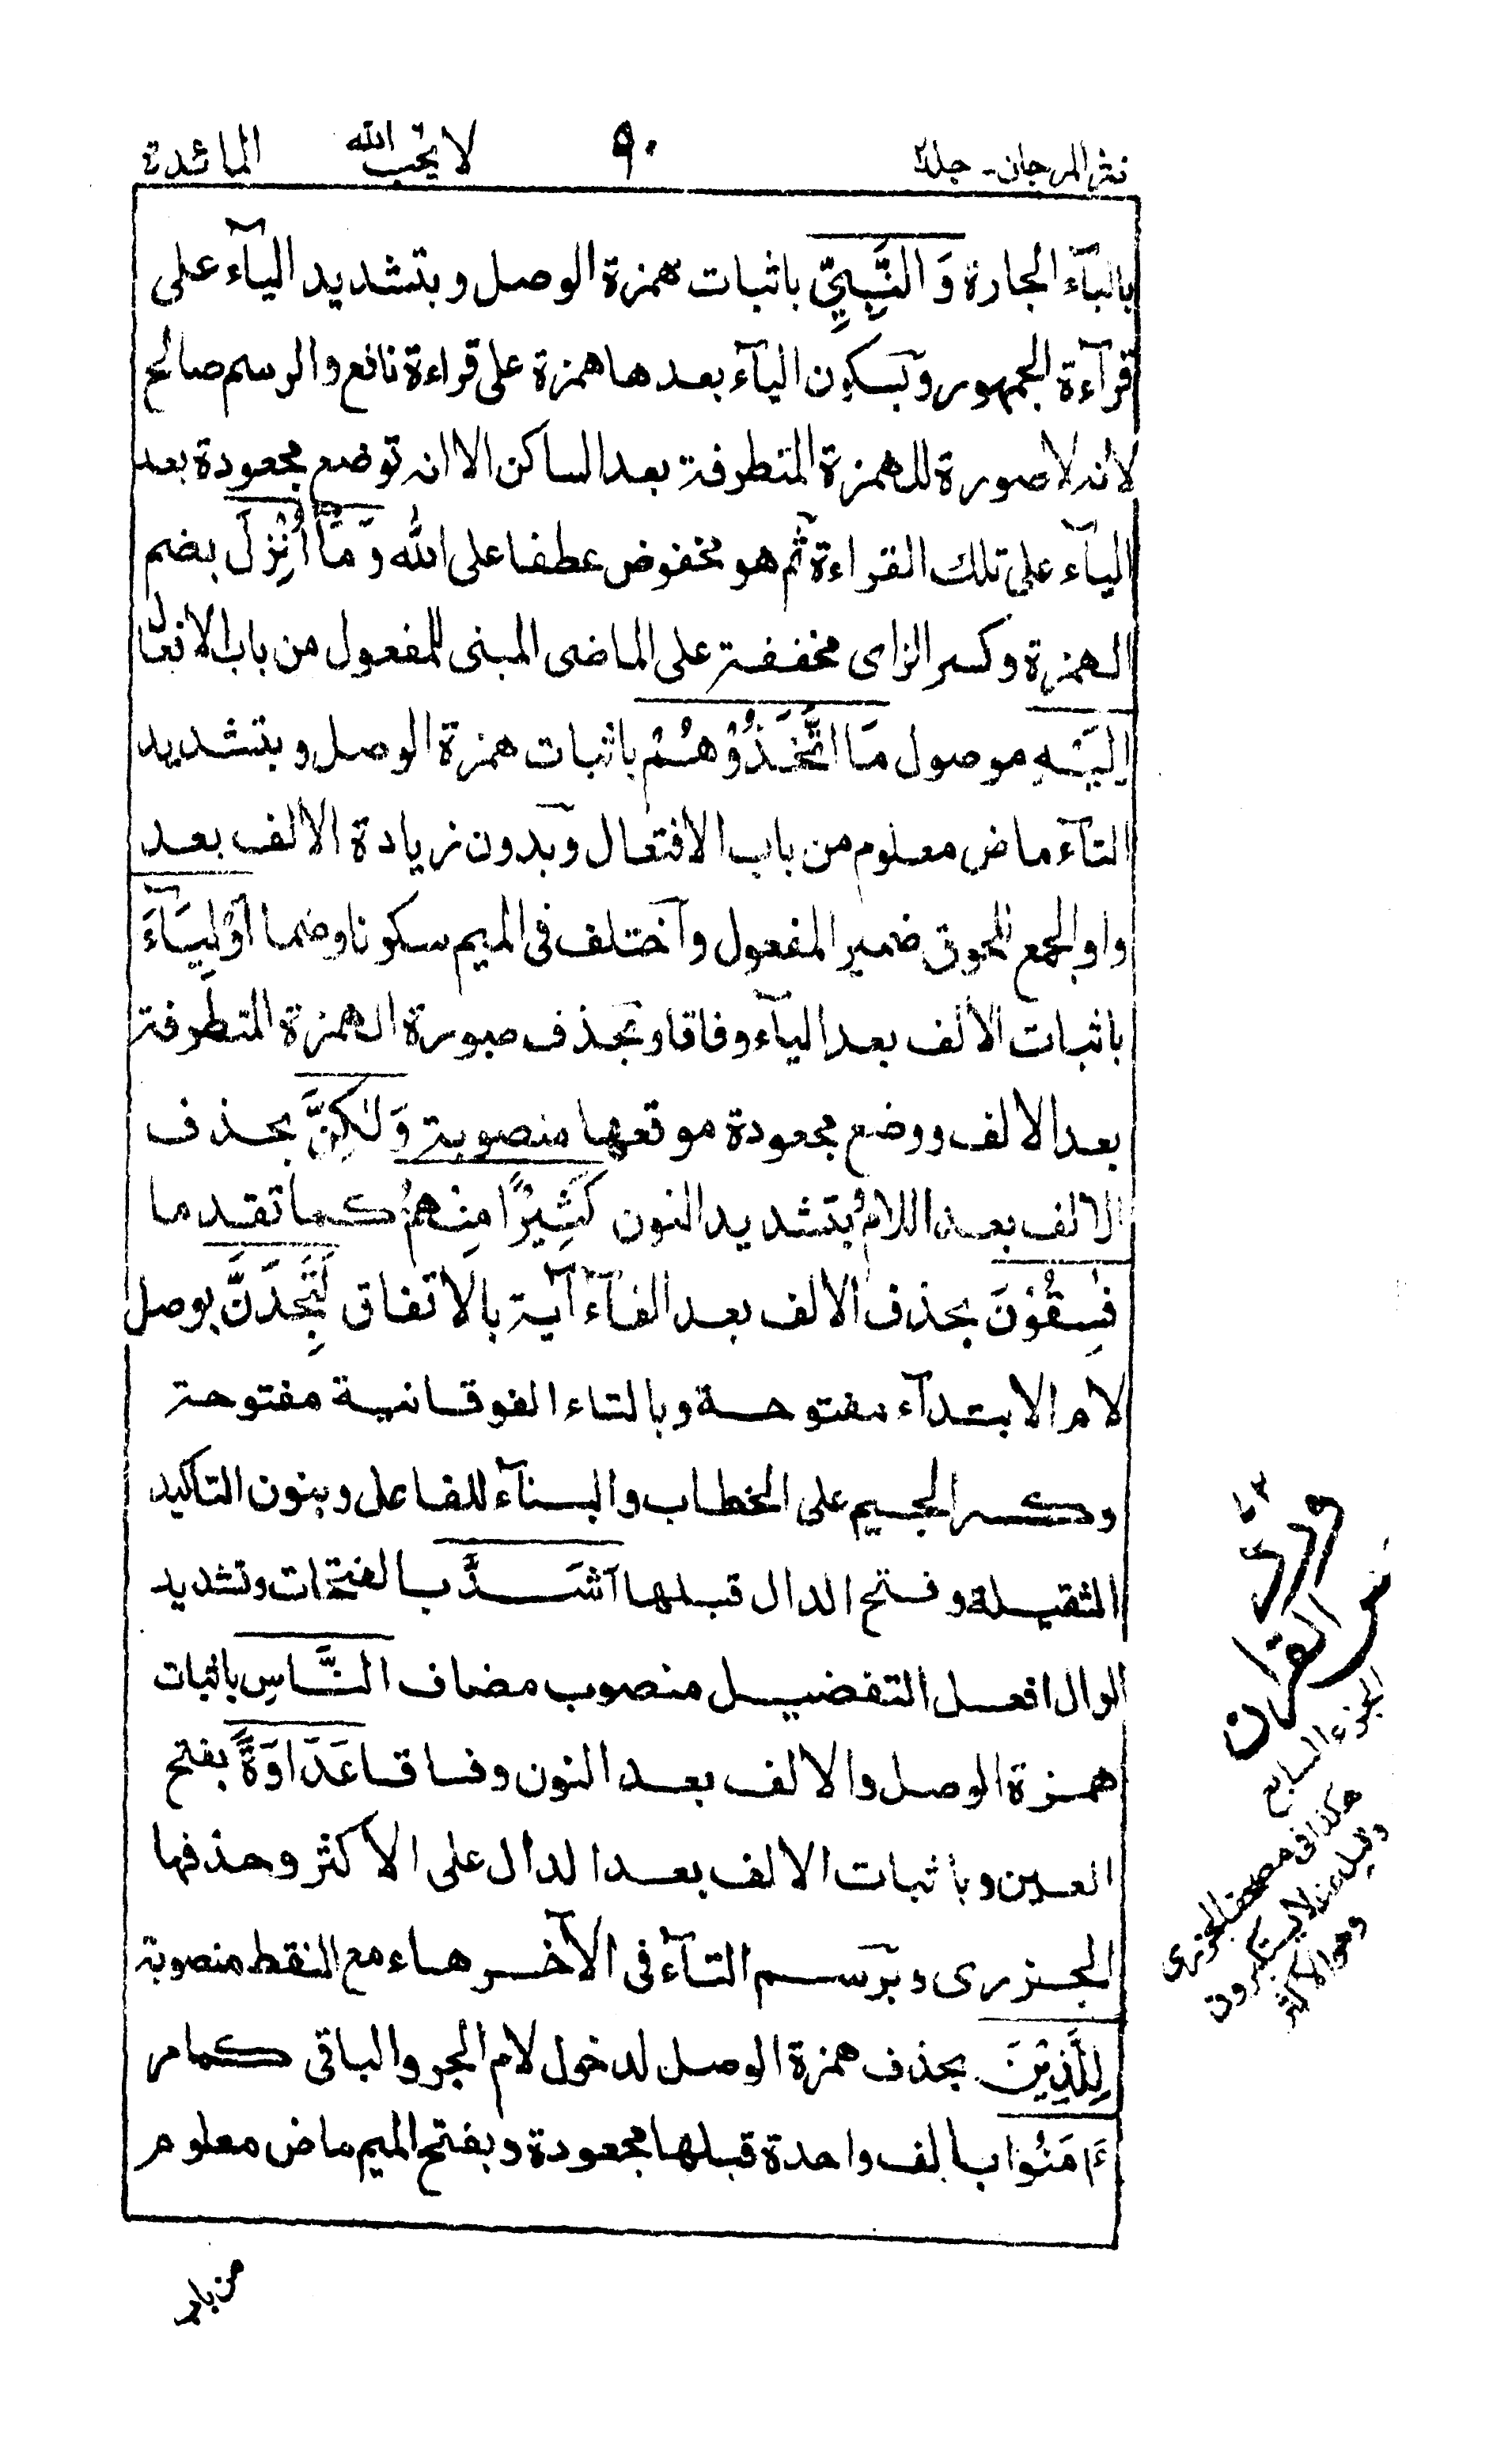 نثر المرجان - جلد٢ ٩٠ لا يحب الله المائدة
بالبآء الجارة وَالنَّبِيِّ باثبات همزة الوصل وبتشديد اليآء على
قرآءة الجمهور وبسكون اليآء بعدها همزة على قراءة نافع والرسم صالح
لانه لا صورة للهمزة المتطرفة بعد الساكن الا انه توضع مجعودة بعد
اليآء على تلك القراءة ثم هو مخفوض عطفا على الله وَمَآ اُنْزِلَ بضم
الهمزة وكسر الزاى مخففة على الماضى المبنى للمفعول من باب الافعال
اِلَيْهِ موصول مَا اتَّخَذُوْهُمْ باثبات همزة الوصل وبتشديد
التآء ماض معلوم من باب الافتعال وبدون زيادة الالف بعد
واو الجمع للحوق ضمير المفعول وآختلف فى الميم سكونا وضما اَوْلِيَآءَ
باثبات الالف بعد اليآء وفاقا وبحذف صورة الهمزة المتطرفة
بعد الالف ووضع مجعودة موقعها منصوبة وَلٰكِنَّ بحذف
الالف بعد اللام وبتشديد النون كَثِيْرًا مِنْهُمْ كما تقدما
فٰسِقُوْنَ بحذف الالف بعد الفآء آية بالاتفاق لَتَجِدَنَّ بوصل
لام الابتدآء مفتوحة وبالتاء الفوقانية مفتوحة
وكسر الجيم على الخطاب والبنآء للفاعل وبنون التاكيد
الثقيلة وفتح الدال قبلها اَشَدَّ بالفتحات وتشديد
الدال افعل التفضيل منصوب مضاف النَّاسِ باثبات
همزة الوصل والالف بعد النون وفاقا عَدَاوَةً بفتح
العين وباثبات الالف بعد الدال على الاكثر وحذفها
الجزرى وبرسم التآء فى الآخر هاء مع النقط منصوبة
لِلَّذِيْنَ بحذف همزة الوصل لدخول لام الجر والباقى كما مر
ءَامَنُوا بالف واحدة قبلها مجعودة وبفتح الميم ماض معلوم
القرآن
الجزء السابع
هكذا فى مصحف الجزرى
وقيل عند لا يستكبرون
وهو الاكثر
من باب